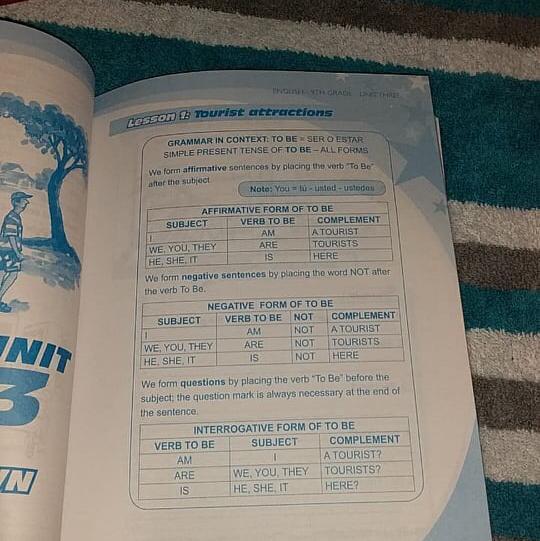 UNIT
3
WN
ENGLISH - 9TH GRADE - UNIT THREE
Lesson 1: Tourist attractions
GRAMMAR IN CONTEXT: TO BE = SER O ESTAR
SIMPLE PRESENT TENSE OF TO BE – ALL FORMS
We form affirmative sentences by placing the verb "To Be"
after the subject
Note: You = tú - usted - ustedes
AFFIRMATIVE FORM OF TO BE
SUBJECT VERB TO BE COMPLEMENT
I AM A TOURIST
WE, YOU, THEY ARE TOURISTS
HE, SHE, IT IS HERE
We form negative sentences by placing the word NOT after
the verb To Be.
NEGATIVE FORM OF TO BE
SUBJECT VERB TO BE NOT COMPLEMENT
I AM NOT A TOURIST
WE, YOU, THEY ARE NOT TOURISTS
HE, SHE, IT IS NOT HERE
We form questions by placing the verb "To Be" before the
subject; the question mark is always necessary at the end of
the sentence.
INTERROGATIVE FORM OF TO BE
VERB TO BE SUBJECT COMPLEMENT
AM I A TOURIST?
ARE WE, YOU, THEY TOURISTS?
IS HE, SHE, IT HERE?